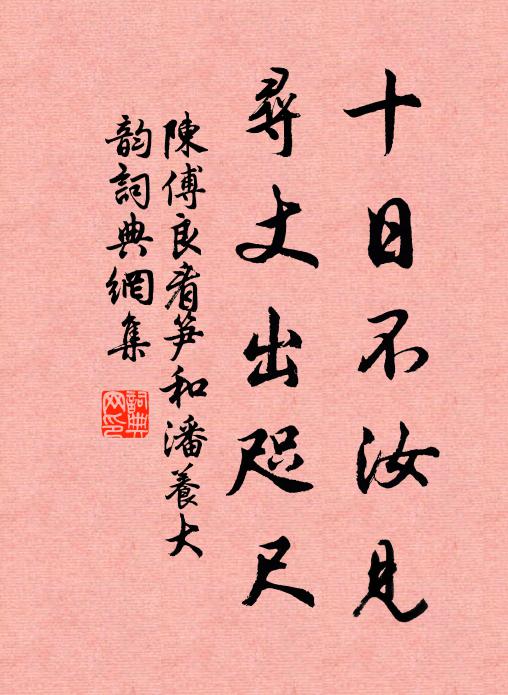 十日不汝見
尋丈出咫尺
陳傅良看笋和潘養大
韵詞典網集
詞典網印